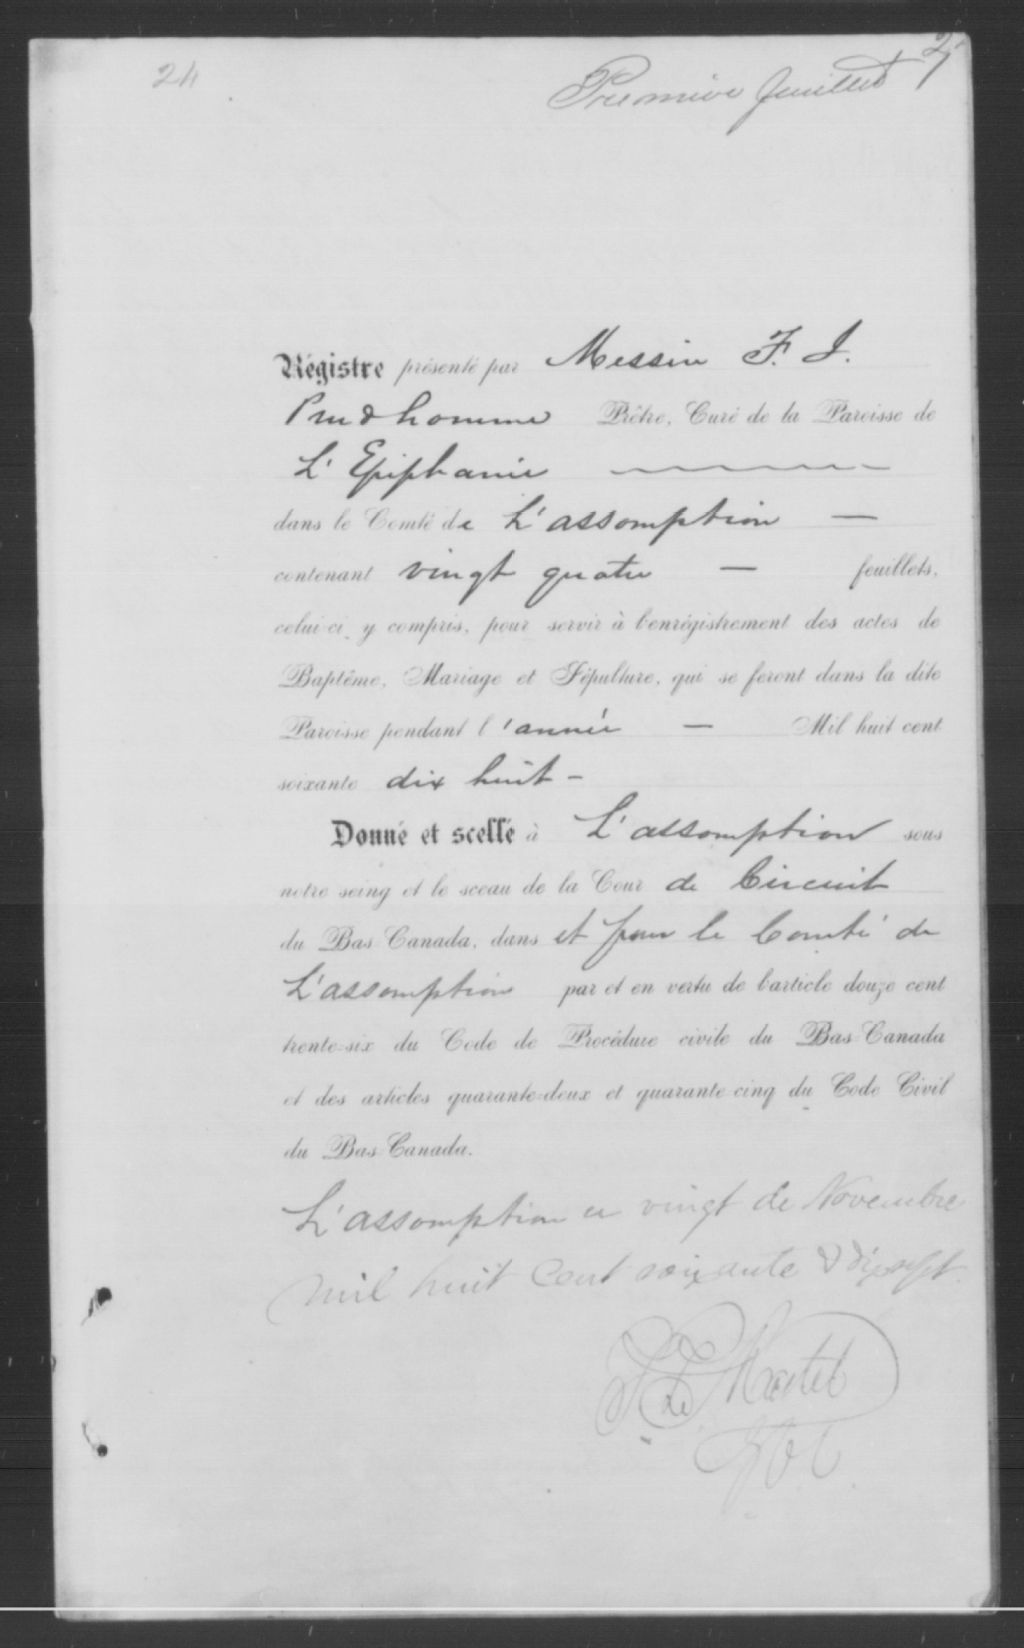 24
Premier feuillet
Régistre présenté par Messire F. J.
Prudhomme Prêtre, Curé de la Paroisse de
L'Epiphanie
dans le Comté de L'assomption —
contenant vingt quatre — feuillets,
celui-ci y compris, pour servir à l'enrégistrement des actes de
Baptême, Mariage et Sépulture, qui se feront dans la dite
Paroisse pendant l'année — Mil huit cent
soixante dix huit -
Donné et scellé à L'assomption sous
notre seing et le sceau de la Cour de Circuit
du Bas-Canada, dans et pour le Comté de
L'assomption par et en vertu de l'article douze cent
trente-six du Code de Procédure civile du Bas-Canada
et des articles quarante-deux et quarante-cinq du Code Civil
du Bas-Canada.
L'assomption ce vingt de Novembre
mil huit cent soixante & dix sept
Martel